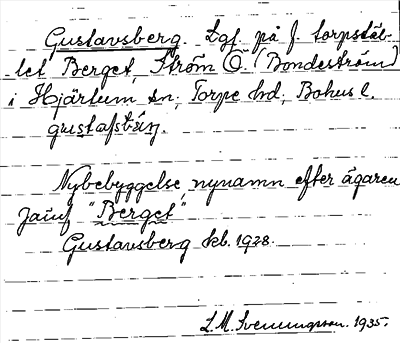 Gustavsberg. Lgf. på f. torpstäl-
let Berget, Ström Ö. (Bondeström)
i Hjärtum sn; Torpe hd; Bohus l.
gustafsbärj.
Nybebyggelse nynamn efter ägaren
Jämf "Berget"
Gustavsberg kb. 1928.
L.M. Svenungsson. 1935.